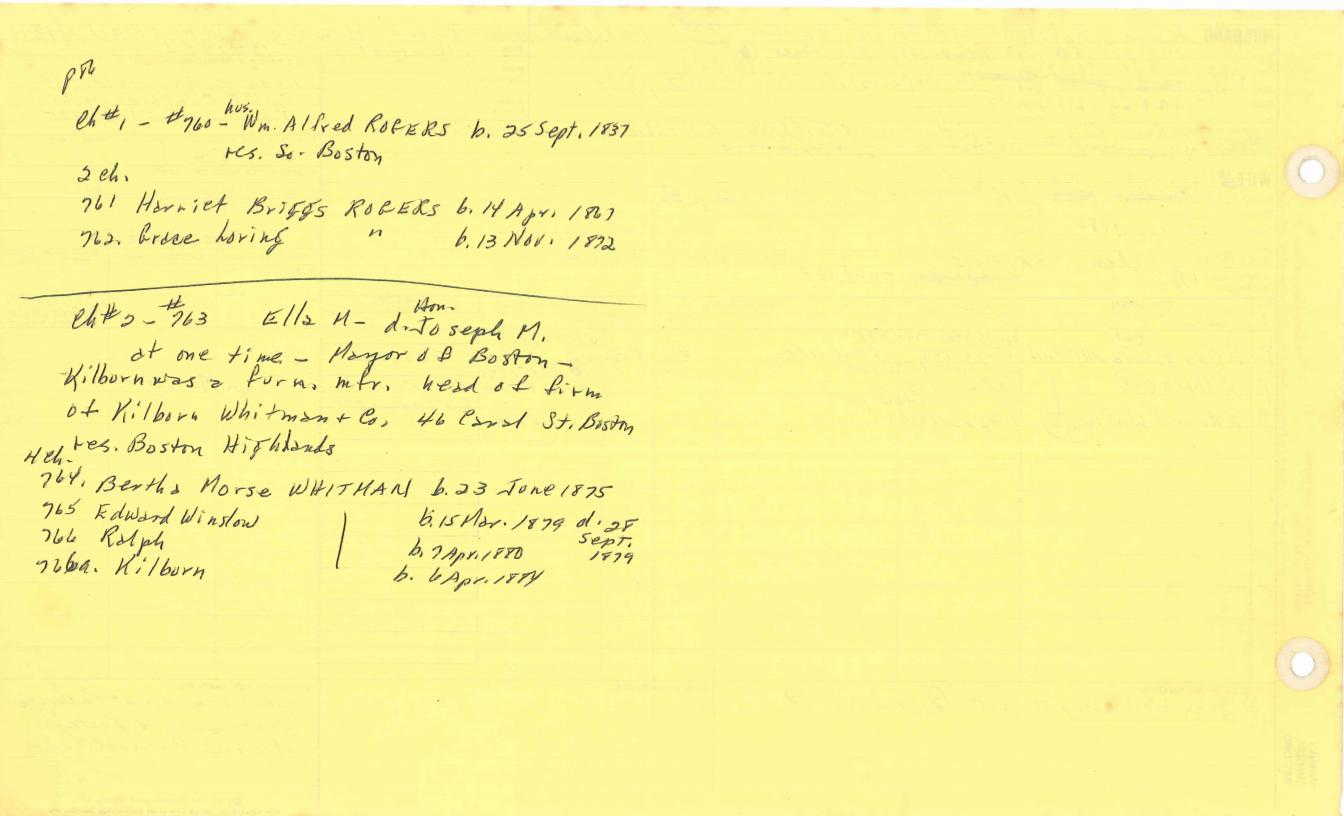 Ch #1 - #760 - hus. Wm. Alfred ROGERS b. 25 Sept. 1837
res. So. Boston
2 ch.
761 Harriet Briggs ROGERS b. 14 Apr. 1867
762. Grace Loring " b. 13 Nov. 1872
Ch #2 - #763 Ella M - d. Hon. Joseph M.
at one time - Mayor of Boston -
Kilborn was a furn. mfr. head of firm
of Kilborn Whitman + Co, 46 Canal St. Boston
res. Boston Highlands
4 ch.
764. Bertha Morse WHITMAN b. 23 June 1875
765 Edward Winslow b. 15 Mar. 1879 d. 28 Sept. 1879
766 Ralph b. 7 Apr. 1880
766a. Kilborn b. 6 Apr. 1884